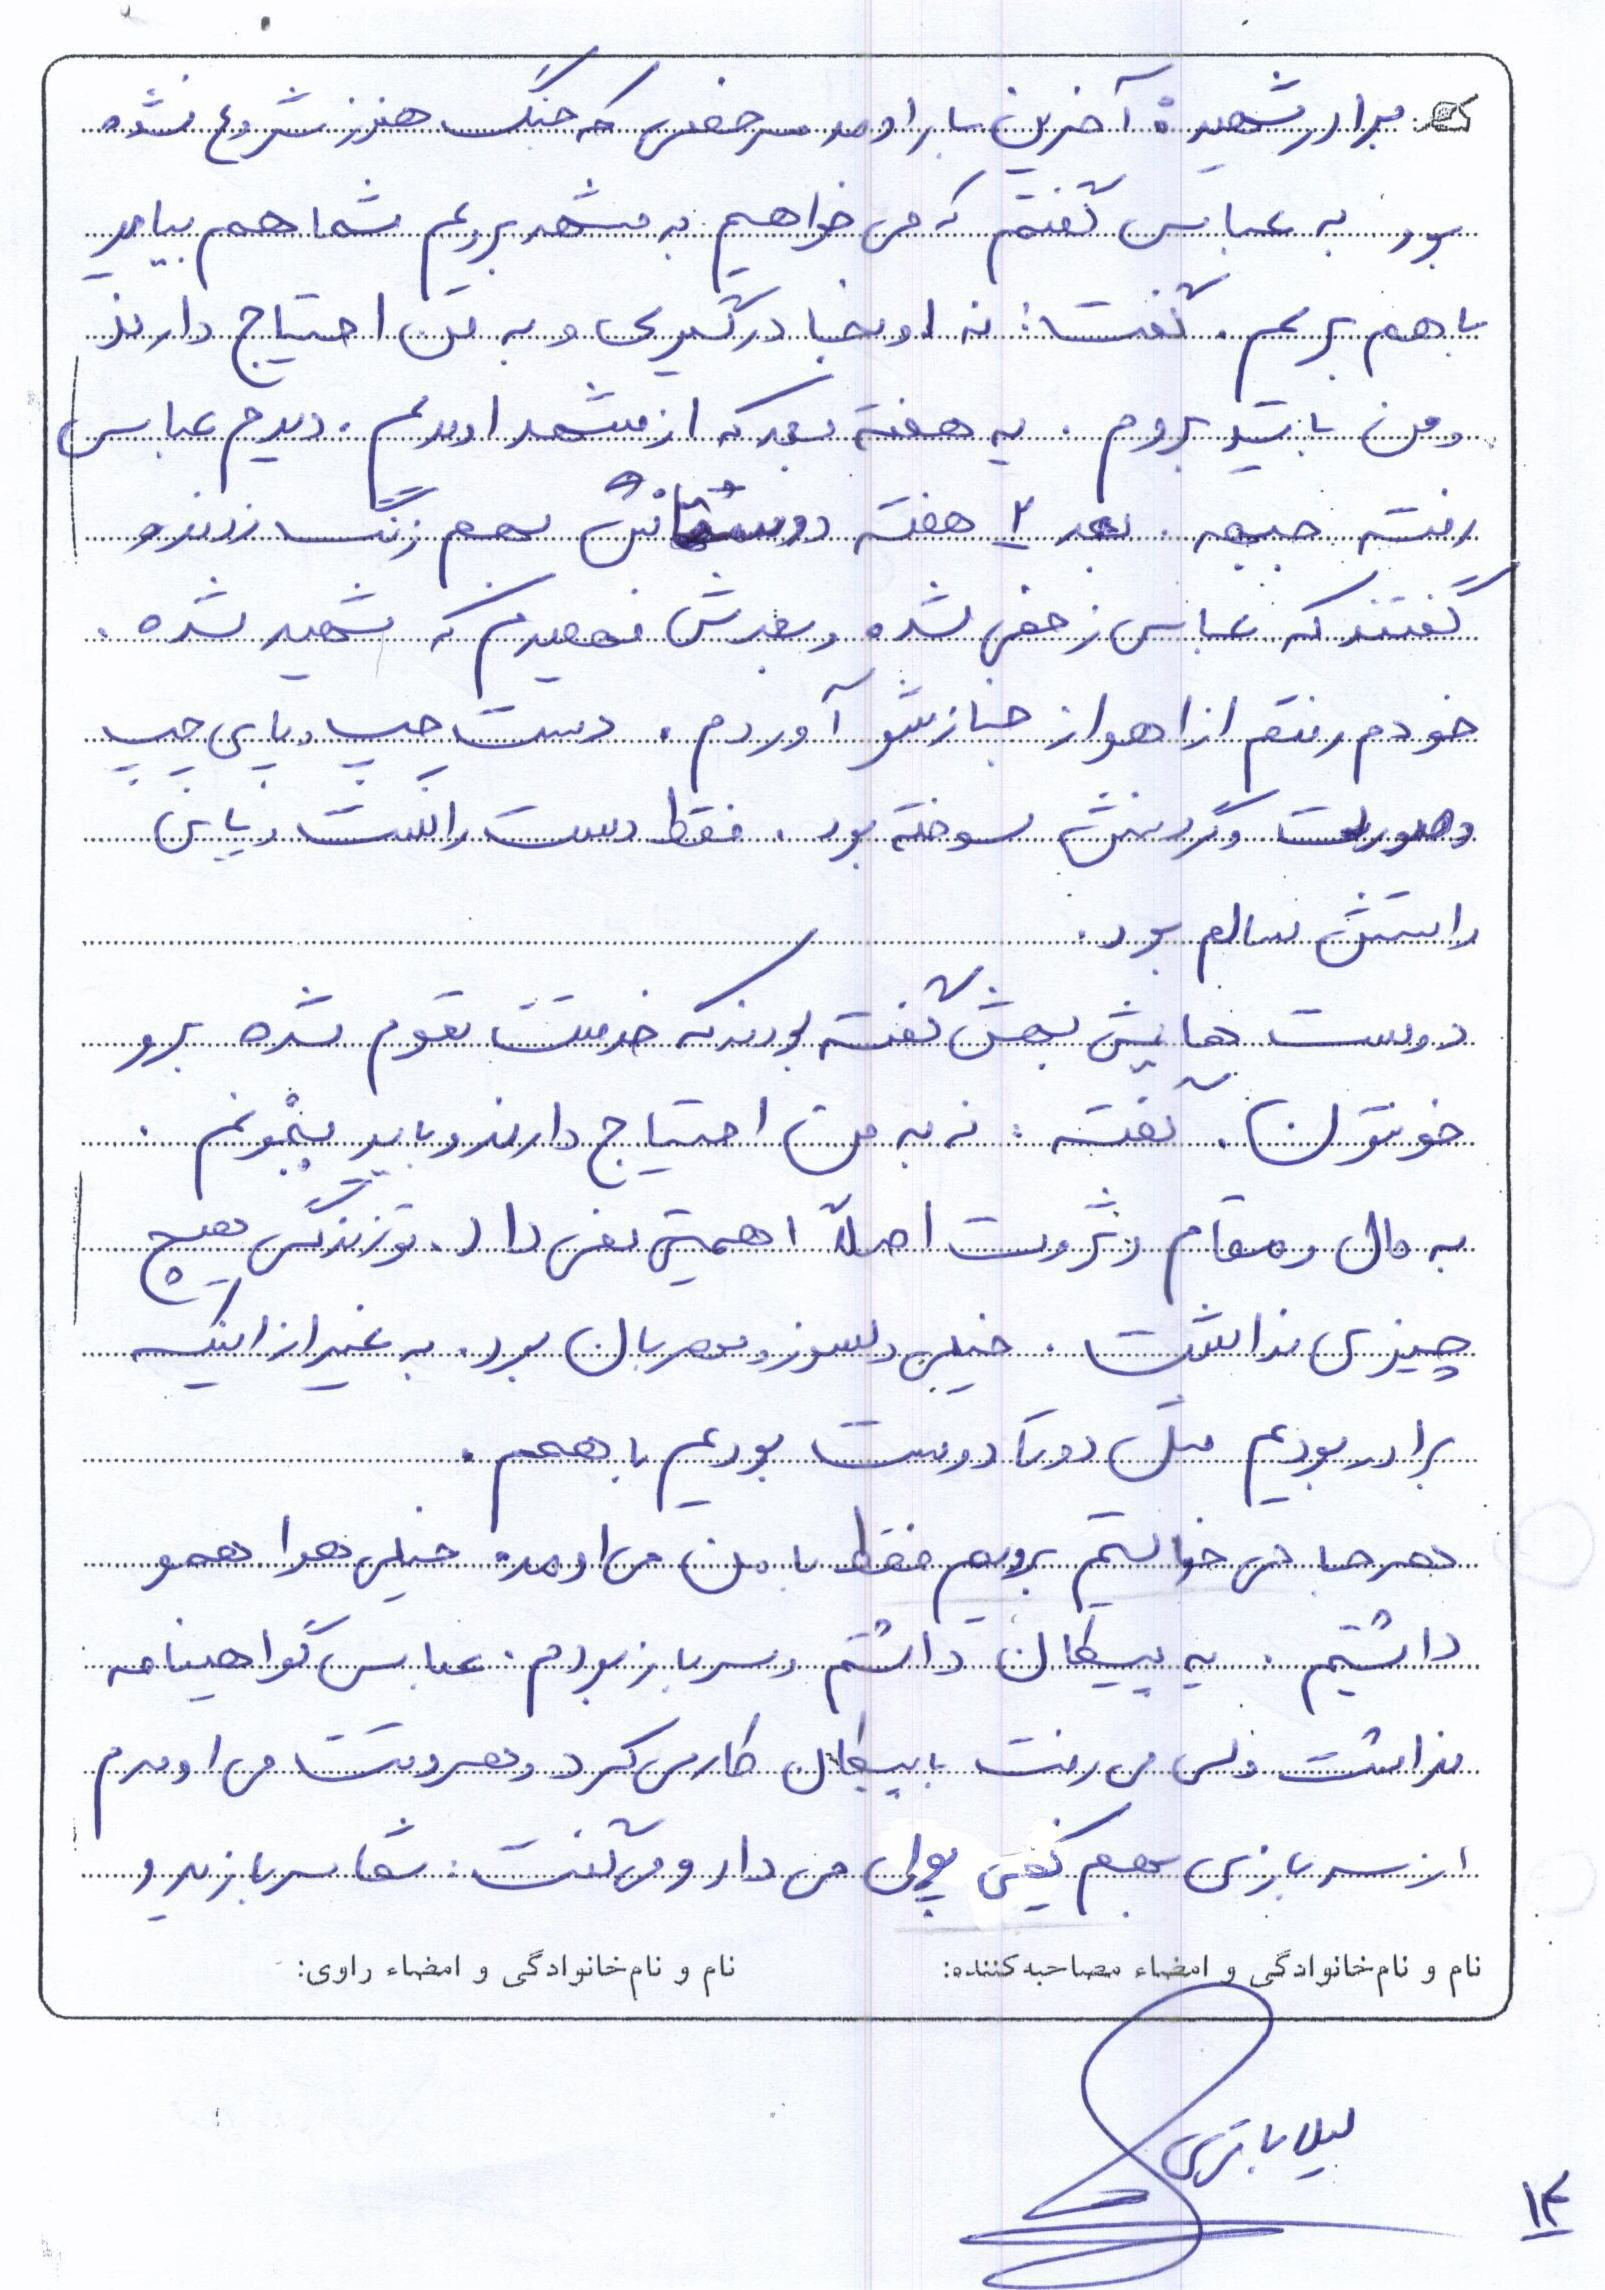 برادر شهید: آخرین بار اومد مرخصی که جنگ هنوز شروع نشده
بود به عباس گفتم که می خواهیم به مشهد برویم شما هم بیایید
با هم بریم. گفت: نه اونجا درگیری و به من احتیاج دارند
و من باید بروم. یه هفته بعد که از مشهد اومدیم. دیدم عباس
رفته جبهه. بعد ۲ هفته دوستانش بهم زنگ زدند و
گفتند که عباس زخمی شده و بعدش فهمیدم که شهید شده.
خودم رفتم از اهواز جنازشو آوردم. دست چپ و پای چپ
و صورت و گردنش سوخته بود. فقط دست راست و پای
راستش سالم بود.
دوست هایش بهش گفته بودند که خدمتت تموم شده برو
خونتون. گفته: نه به من احتیاج دارند و باید بمونم.
به مال و مقام و ثروت اصلاً اهمیتی نمی داد. تو زندگی هیچ
چیزی نداشت. خیلی دلسوز و مهربان بود. به غیر از اینکه
برادر بودیم مثل دو تا دوست بودیم با هم.
هر جا می خواستیم برویم فقط با من می اومد. خیلی هوا همو
داشتیم. یه پیکان داشتم و سرباز بودم. عباس گواهینامه
نداشت ولی می رفت با پیکان کار می کرد و هر وقت می اومدم
از سربازی بهم کمی پول می داد و می گفت: شما سربازید و
نام و نام خانوادگی و امضاء مصاحبه کننده: نام و نام خانوادگی و امضاء راوی:
لیلا باقری
۱۴